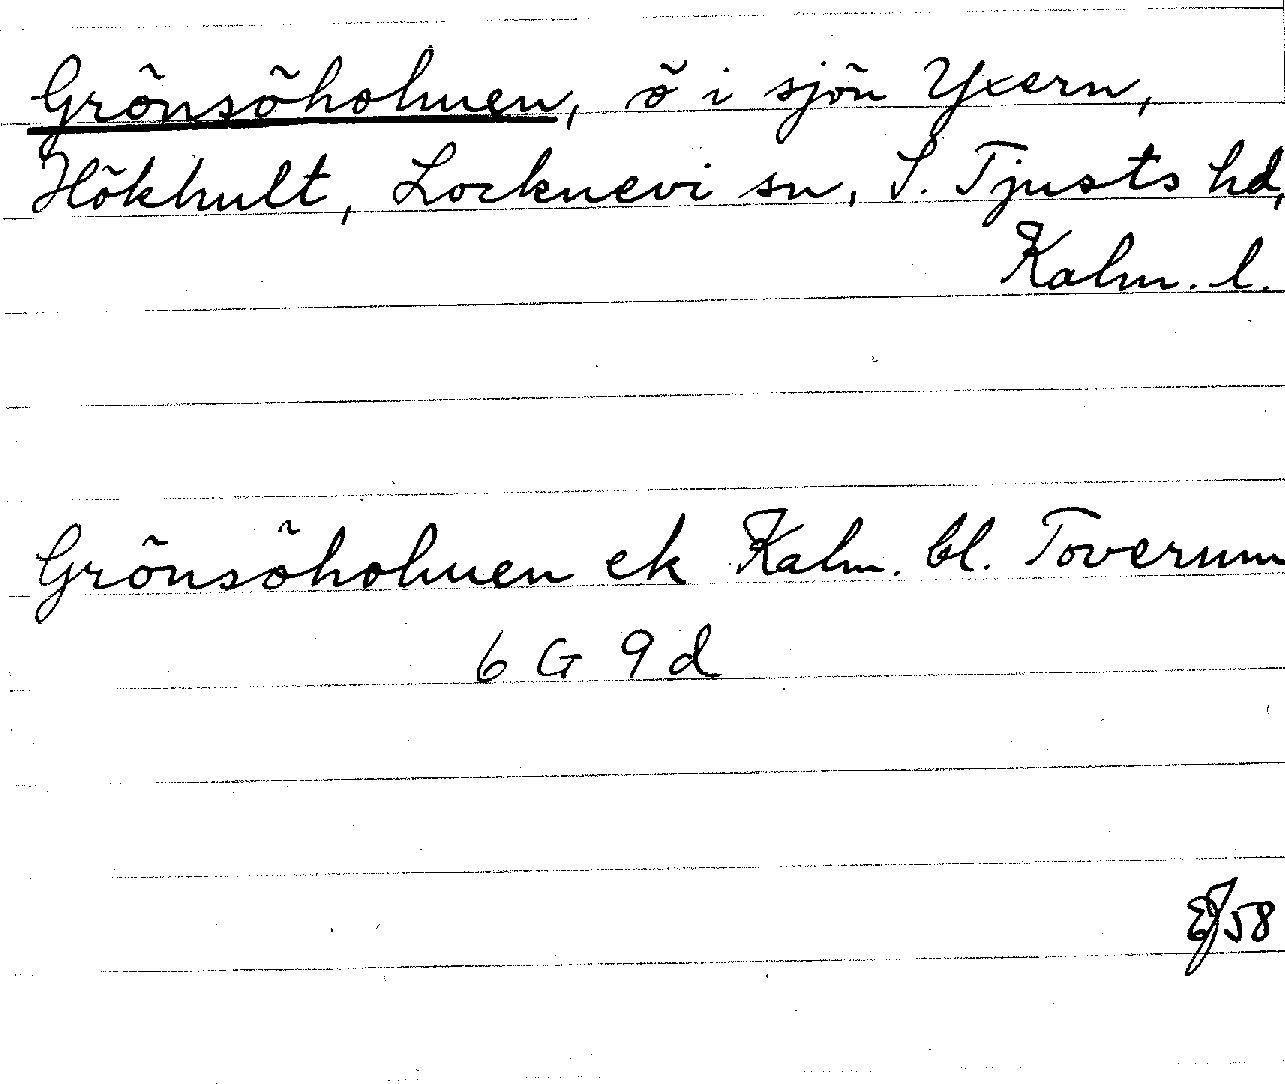 Grönsöholmen, ö i sjön Yxern,
Hökhult, Locknevi sn, S. Tjusts hd,
Kalm. l.
Grönsöholmen ek Kalm. bl. Toverum
6 G 9 d
EJ 58